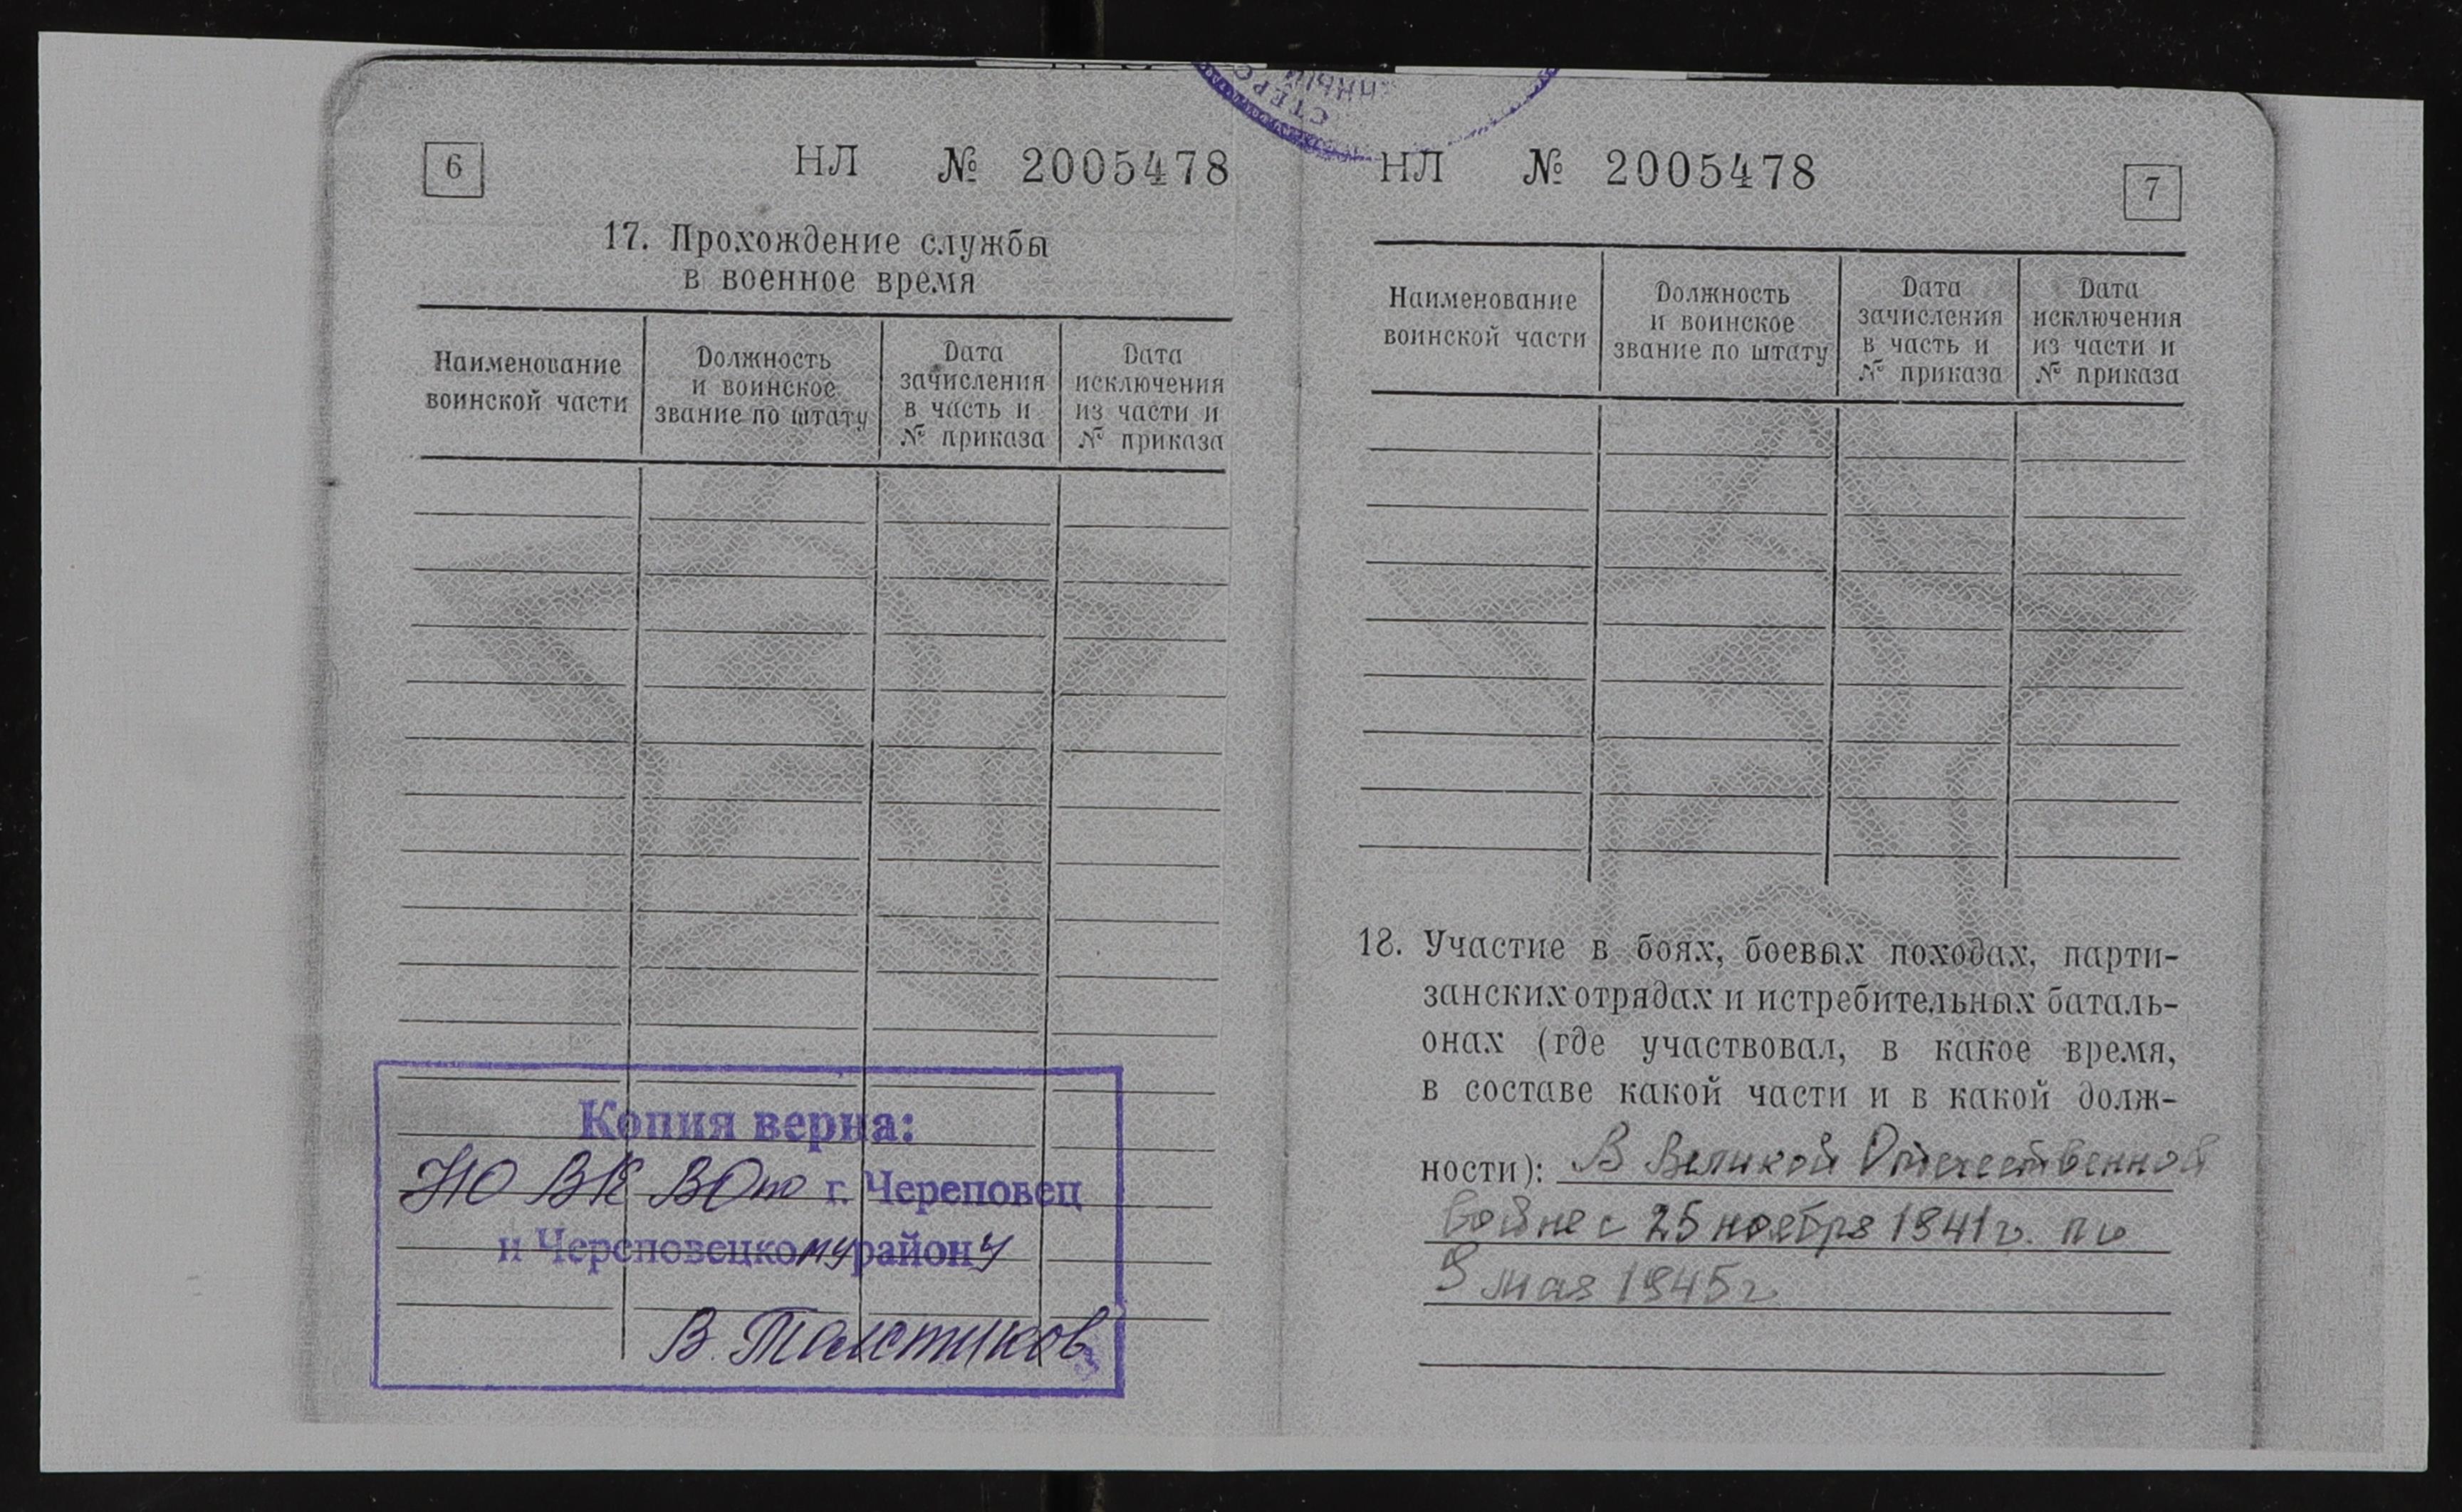 6
НЛ № 2005478
17. Прохождение службы
в военное время
Наименование
воинской части
Должность
и воинское
звание по штату
Дата
зачисления
в часть и
№ приказа
Дата
исключения
из части и
№ приказа
Копия верна:
НО ВК ВО по г. Череповец
и Череповецкому району
В. Толстиков
НЛ № 2005478
7
Наименование
воинской части
Должность
и воинское
звание по штату
Дата
зачисления
в часть и
№ приказа
Дата
исключения
из части и
№ приказа
18. Участие в боях, боевых походах, парти-
занских отрядах и истребительных баталь-
онах (где участвовал, в какое время,
в составе какой части и в какой долж-
ности): В Великой Отечественной
войне с 25 ноября 1941 г. по
9 мая 1945 г